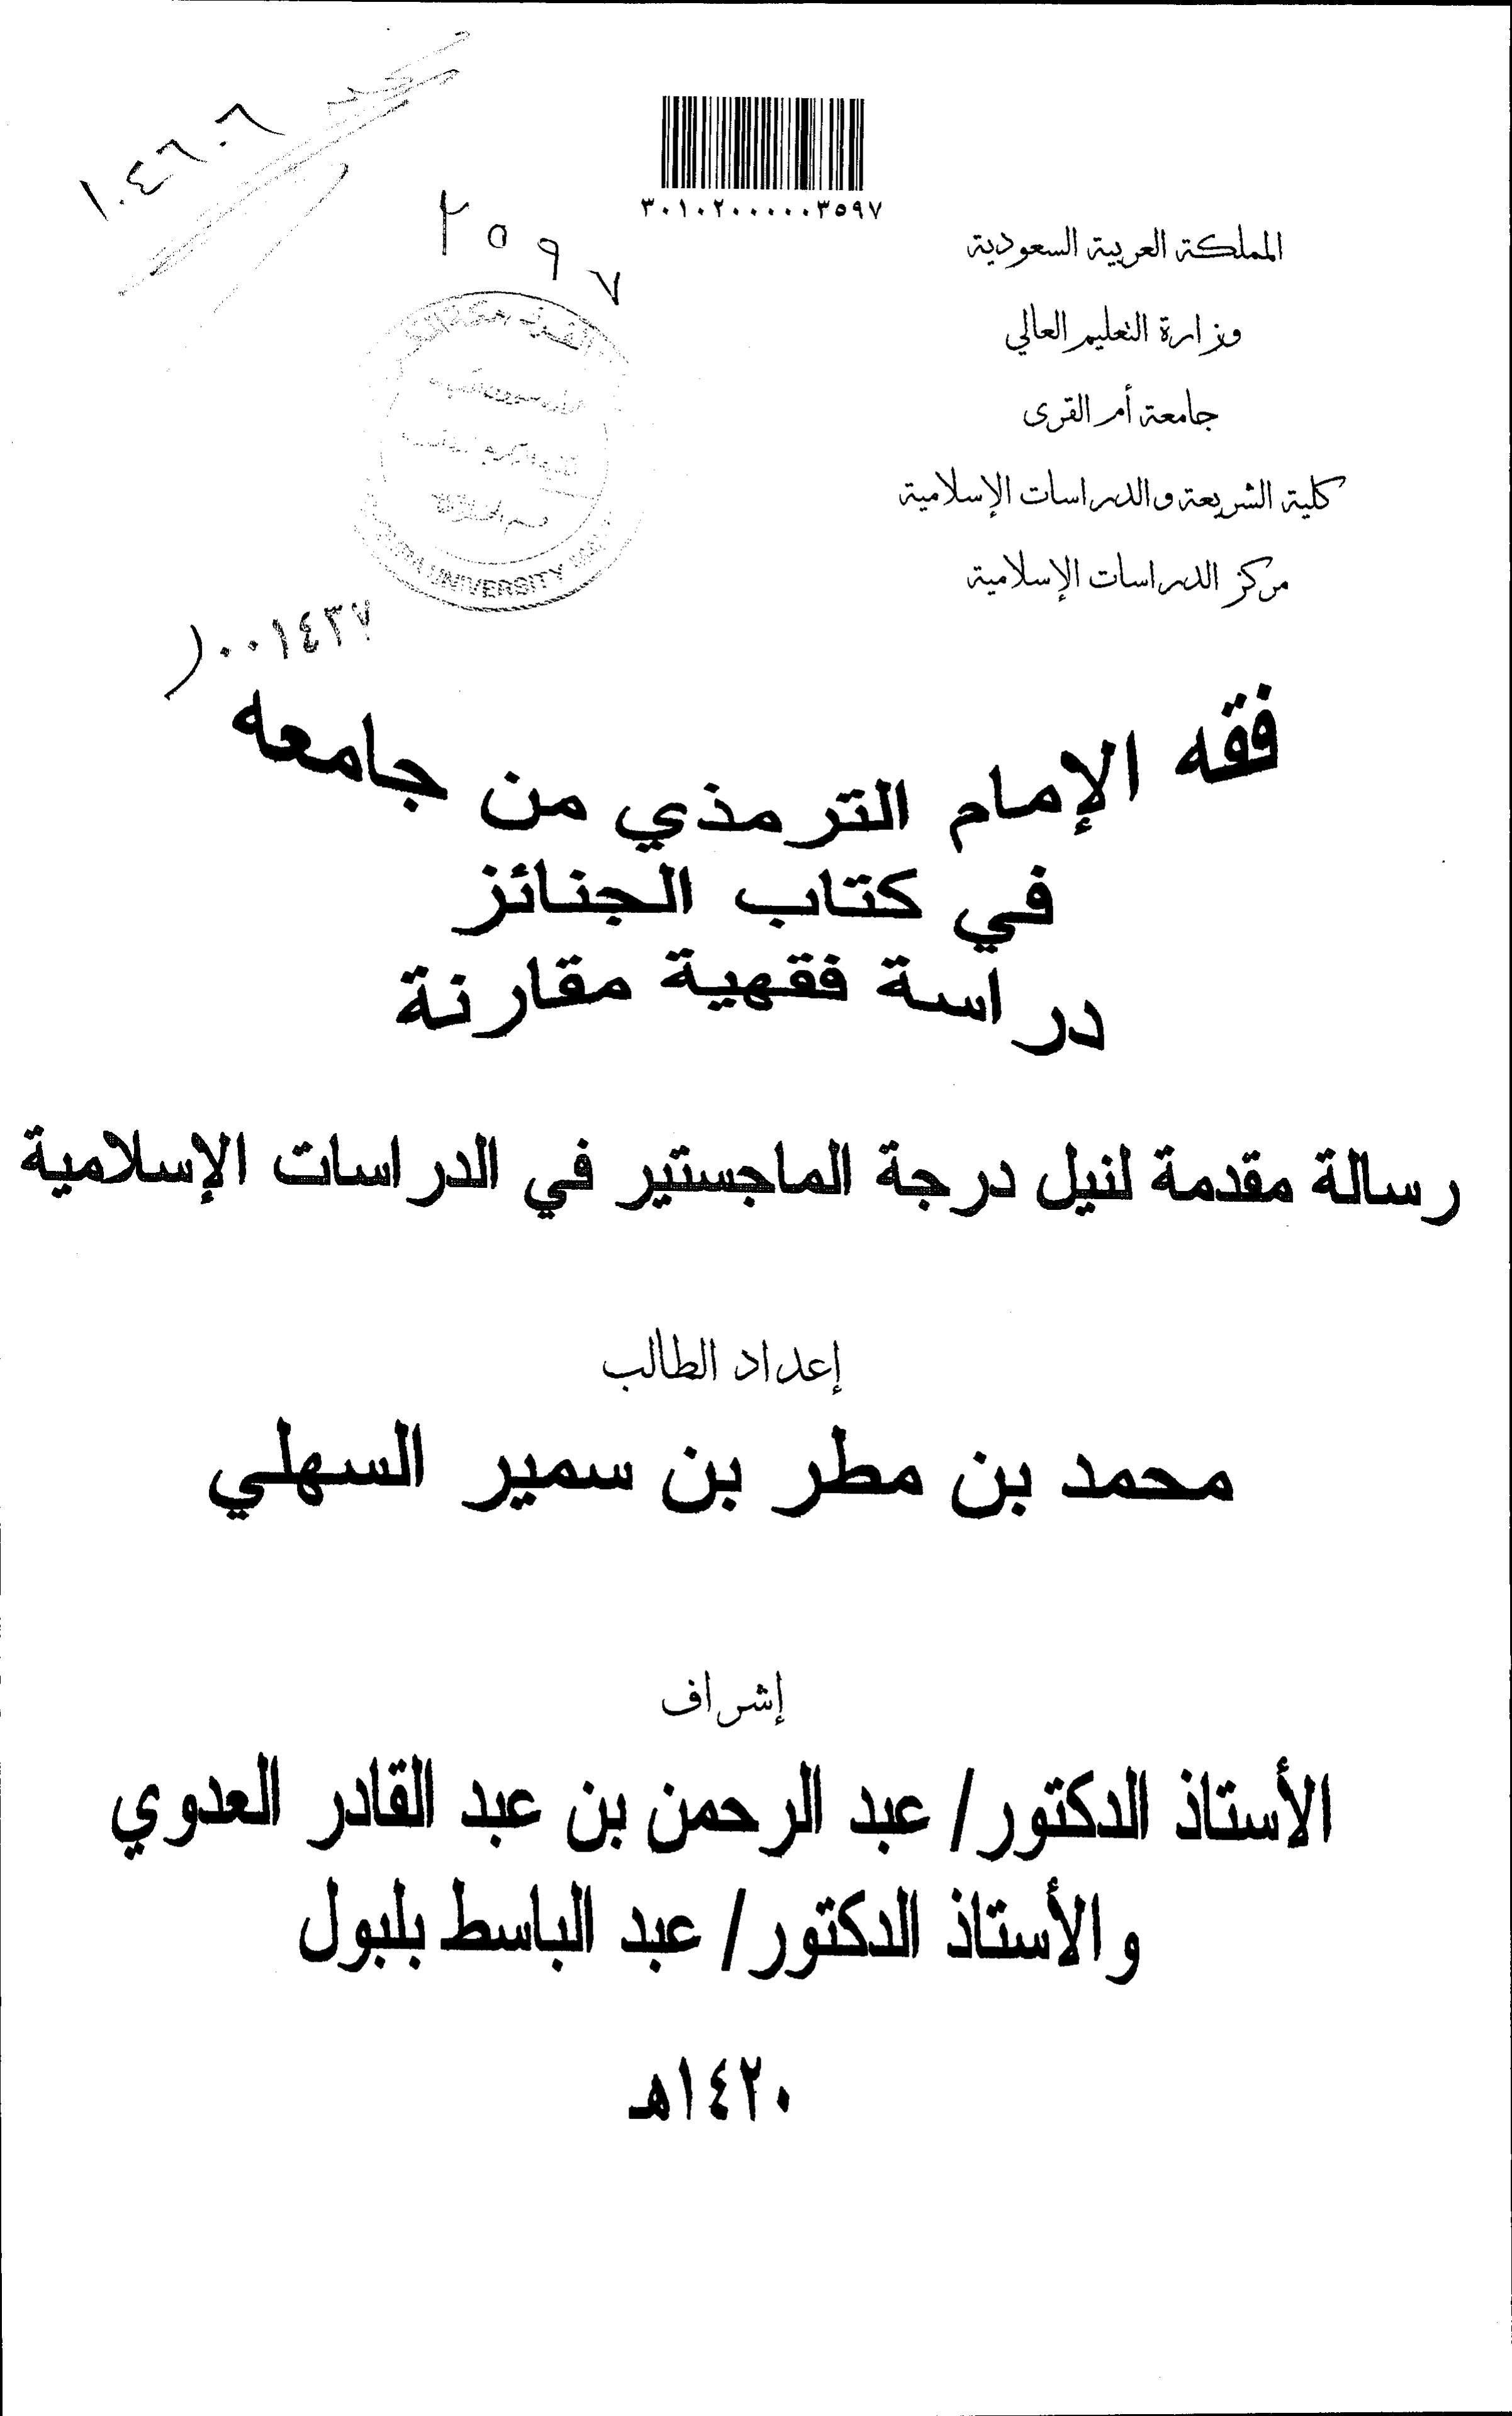 ١٠٤٦٠٦
٣٠١٠٢٠٠٠٠٠٣٥٩٧
٣٥٩٧
المملكة العربية السعودية
وزارة التعليم العالي
جامعة أم القرى
كلية الشريعة والدراسات الإسلامية
مركز الدراسات الإسلامية
UNIVERSITY
٠٠١٤٣٧
فقه الإمام الترمذي من جامعه
في كتاب الجنائز
دراسة فقهية مقارنة
رسالة مقدمة لنيل درجة الماجستير في الدراسات الإسلامية
إعداد الطالب
محمد بن مطر بن سمير السهلي
إشراف
الأستاذ الدكتور/ عبد الرحمن بن عبد القادر العدوي
والأستاذ الدكتور/ عبد الباسط بلبول
١٤٢٠هـ